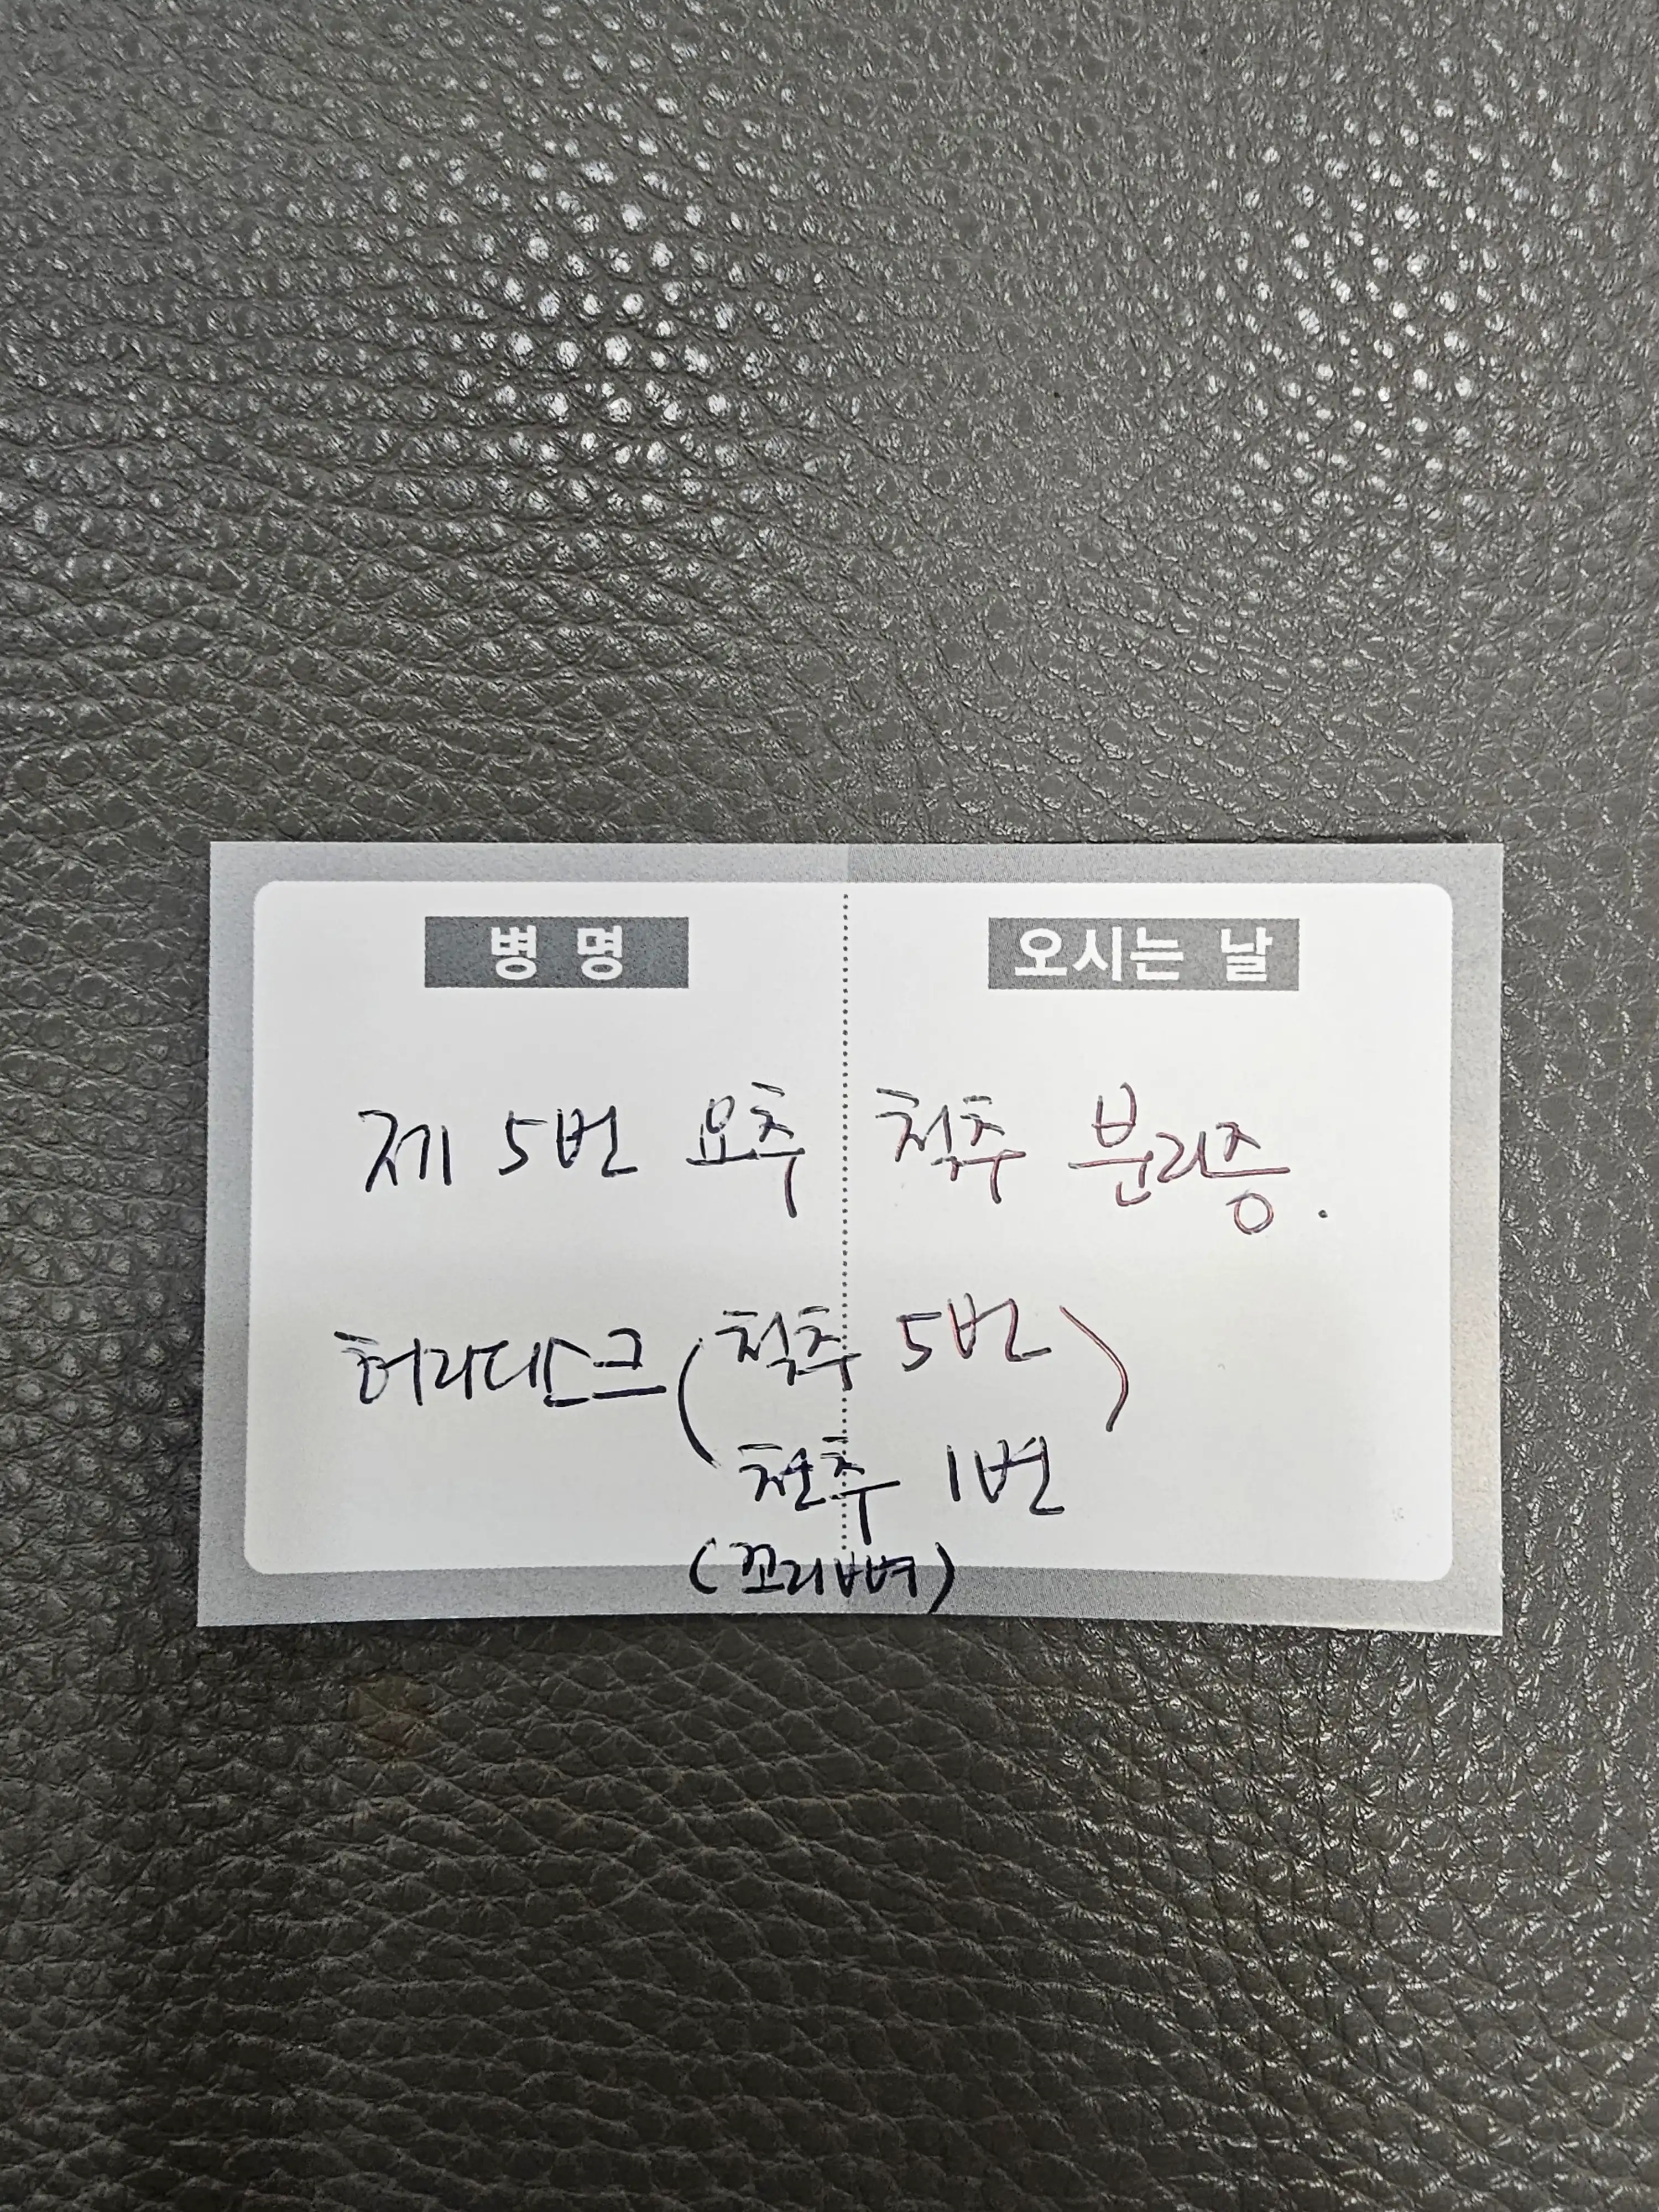 병 명 오시는 날
제 5번 요추 척추 분리증.
허리디스크 (척추 5번)
천추 1번
(꼬리뼈)